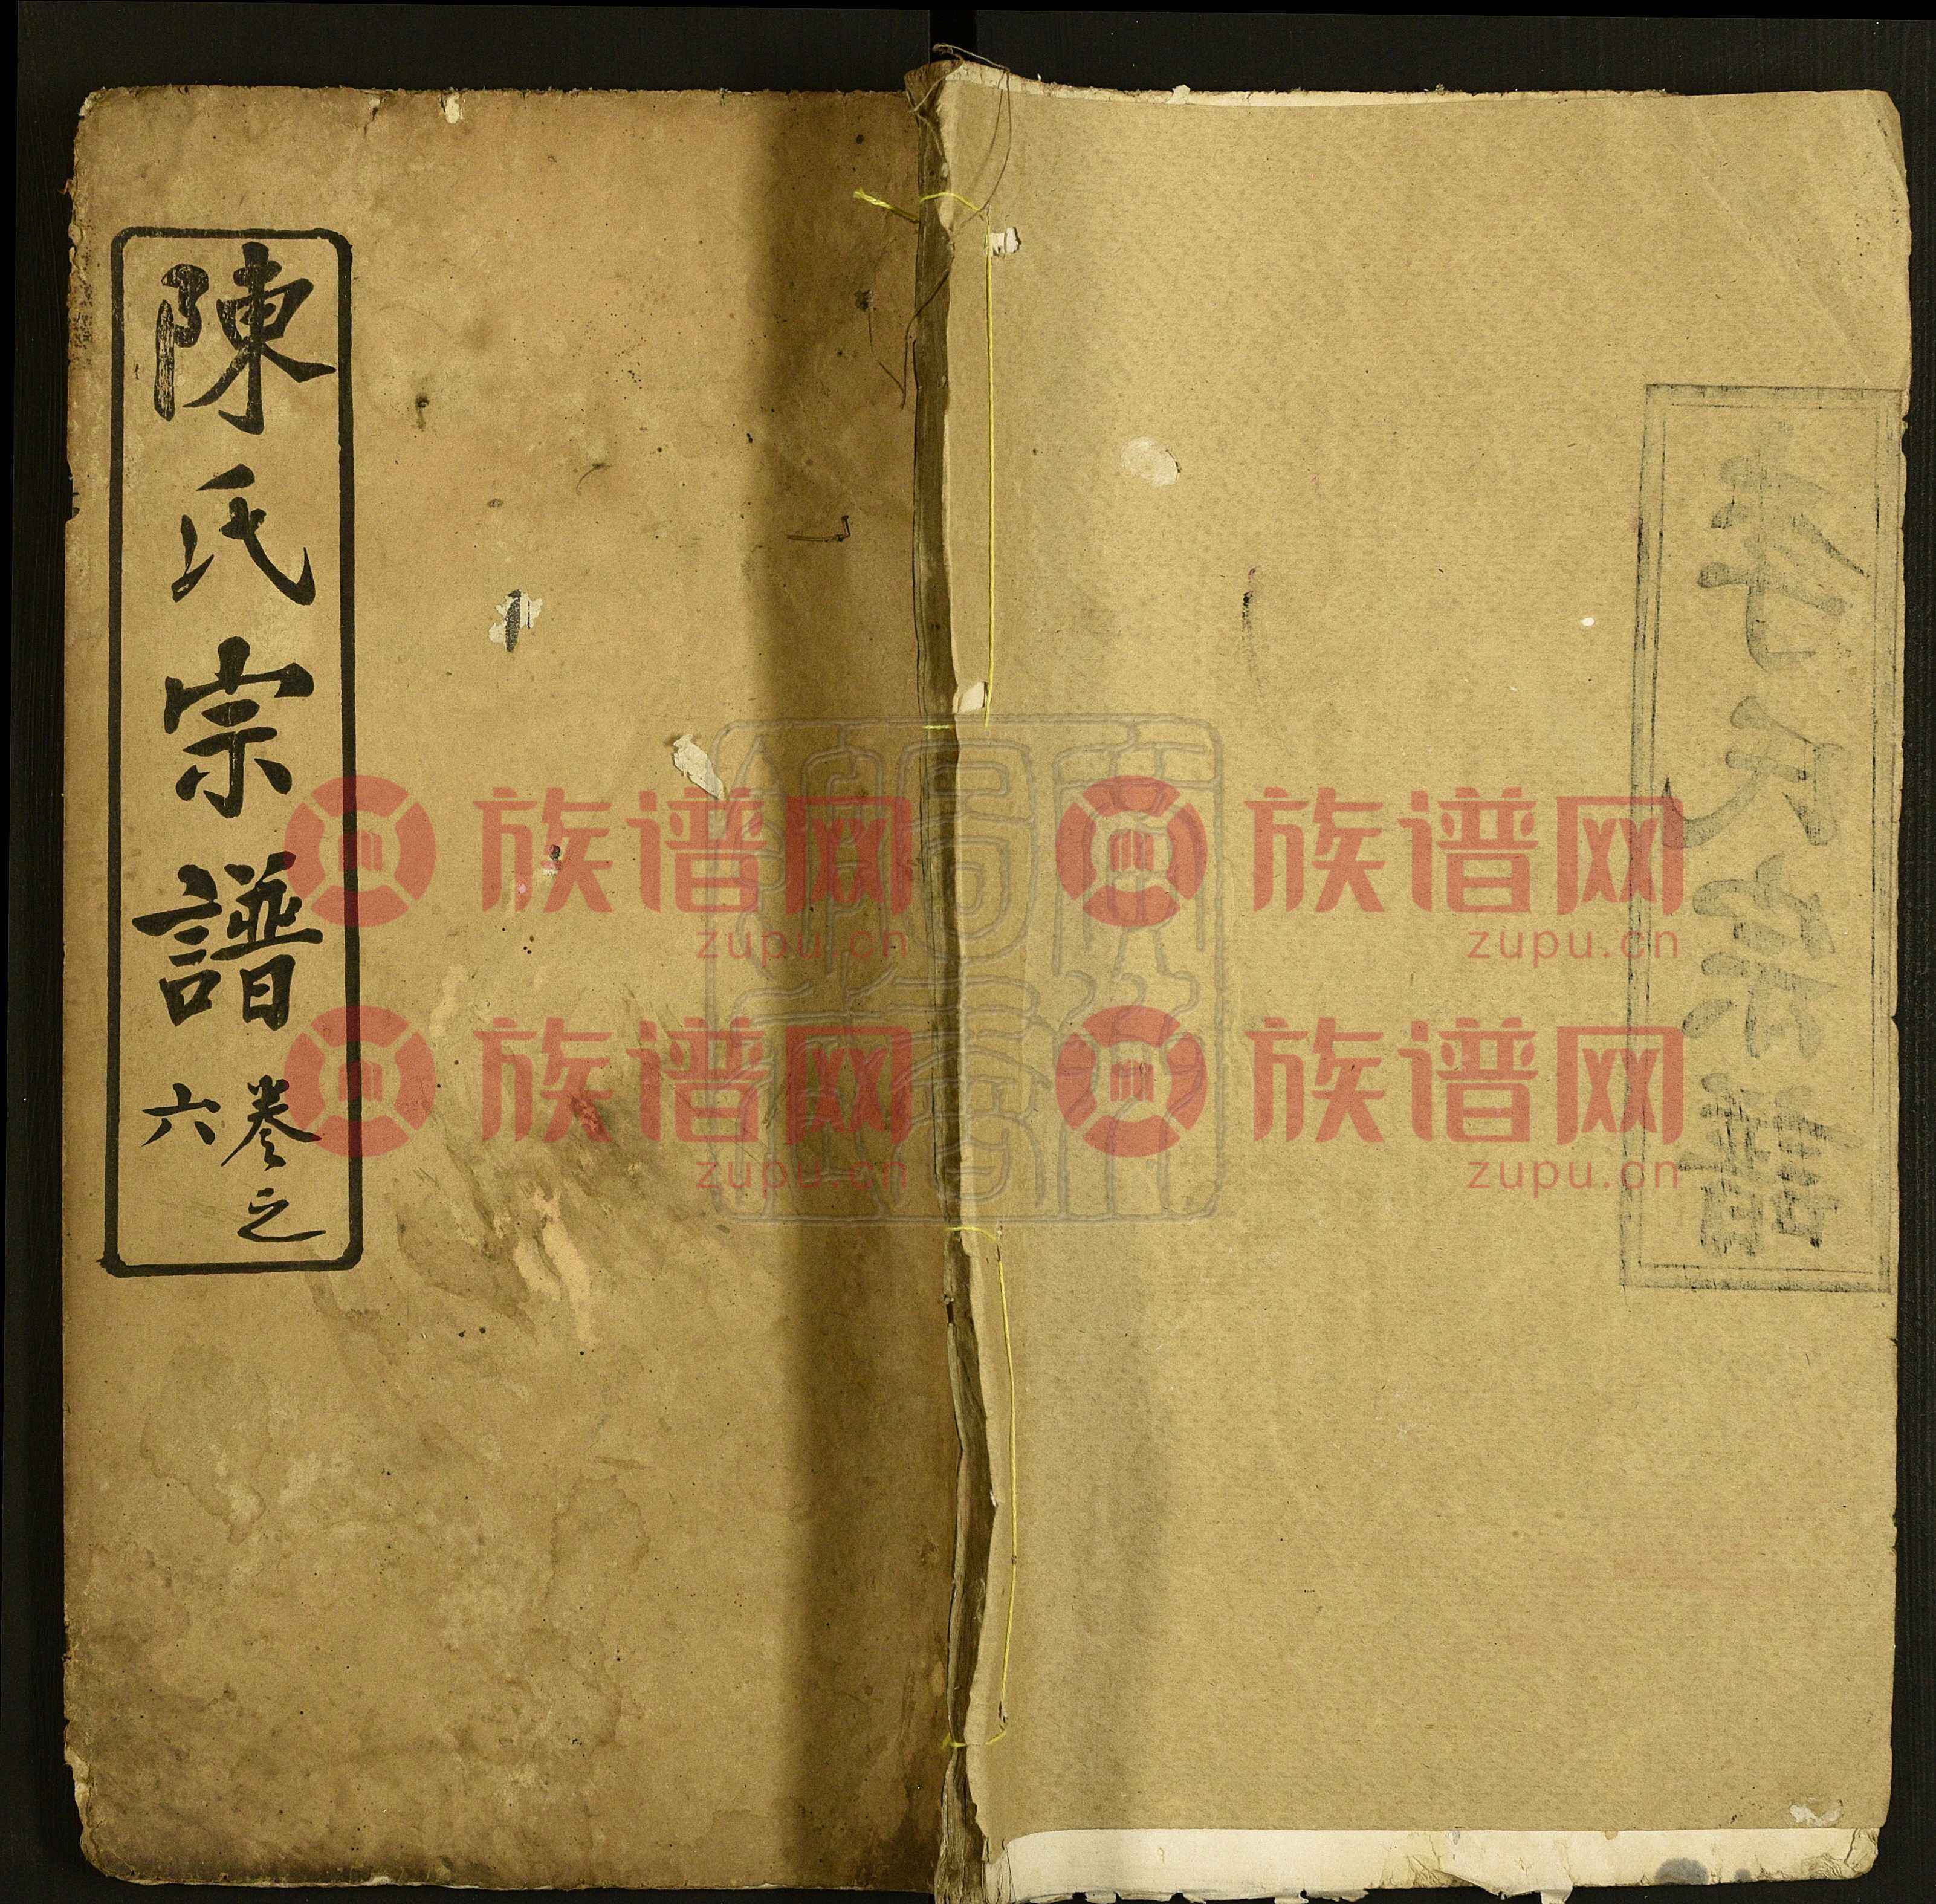 陳氏宗譜
卷之
六
李氏宗譜
族谱网 族谱网
zupu.cn zupu.cn
族谱网 族谱网
zupu.cn zupu.cn